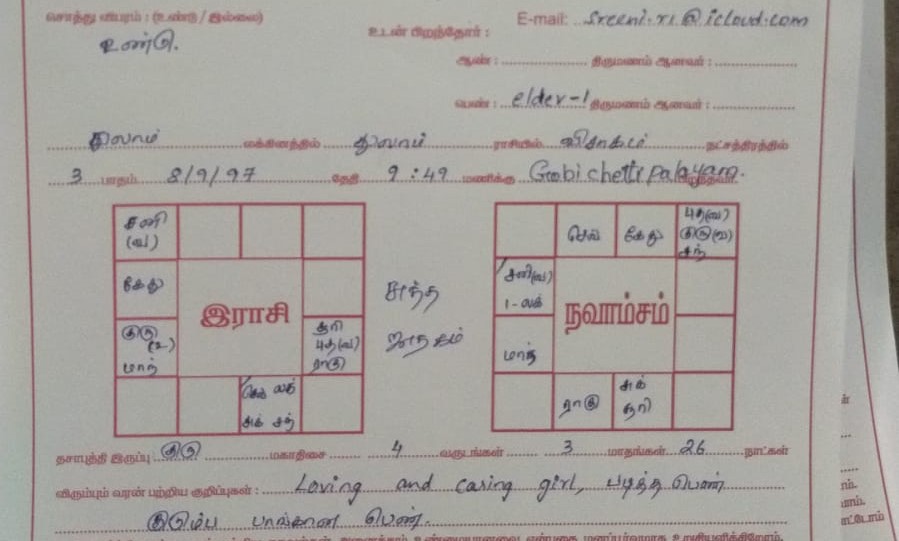 சொத்து விபரம் : (உண்டு / இல்லை)
உண்டு.
E-mail: Sreeni.r1@icloud.com
உடன் பிறந்தோர் :
ஆண் : திருமணம் ஆனவர் :
பெண் : elder-1 திருமணம் ஆனவர் :
துலாம் லக்கினத்தில் துலாம் ராசியில் விசாகம் நட்சத்திரத்தில்
3 பாதம் 8/9/97 தேதி 9:49 மணிக்கு Gobichettipalayam.
சனி
(வ)
கேது
குரு
(வ)
மாந்
இராசி
சூரி
புத(வ)
ராகு
செவ் லக்
சுக் சந்
சுத்த
ஜாதகம்
செவ்
கேது
புத(வ)
குரு(வ)
சந்
சனி(வ)
1-லக்
மாந்
நவாம்சம்
ராகு
சுக்
சூரி
தசாபுத்தி இருப்பு குரு மகாதிசை 4 வருடங்கள் 3 மாதங்கள் 26 நாட்கள்
விரும்பும் வரன் பற்றிய குறிப்புகள் : Loving and caring girl, படித்த பெண்
குடும்ப பாங்கான பெண்.